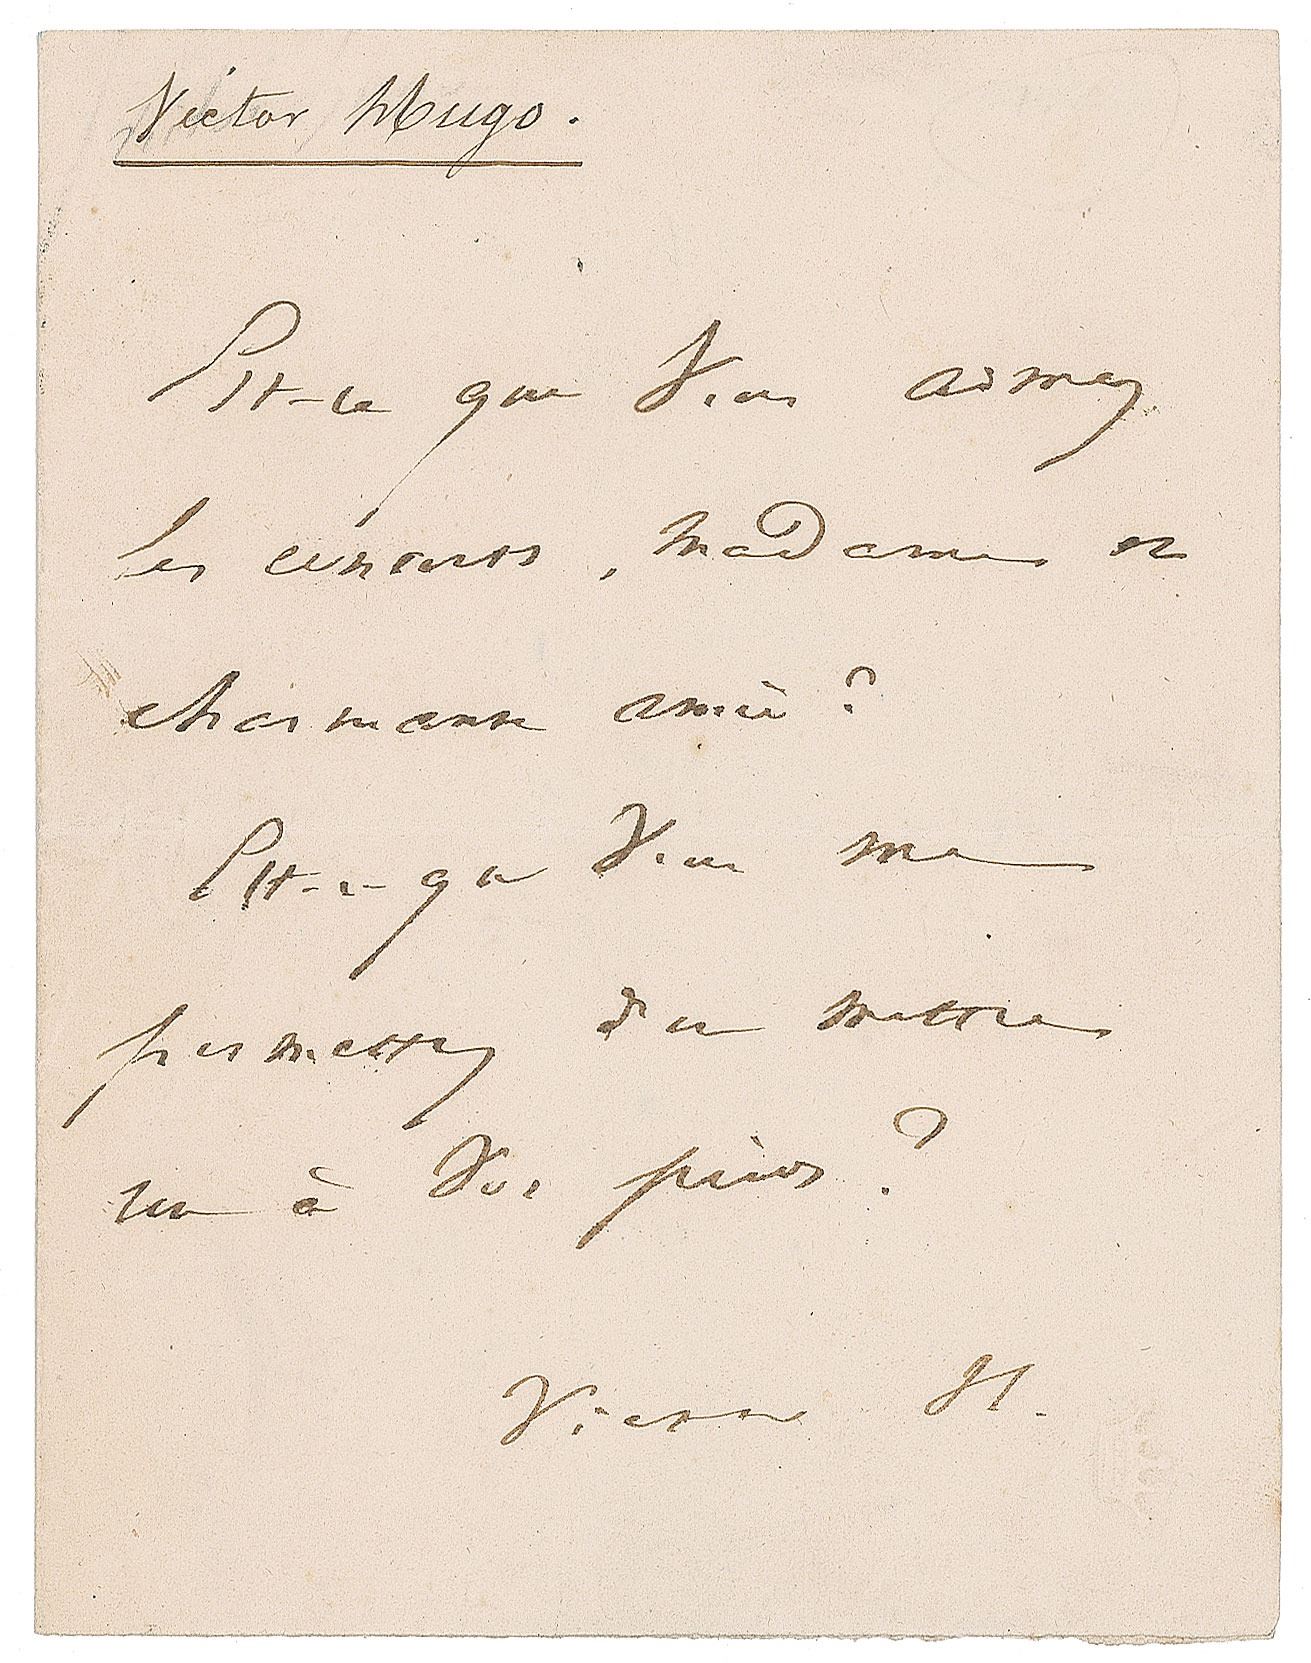 Victor Hugo.
Est-ce que vous aimez
les concerts, madame et
charmante amie ?
Est-ce que vous me
permettez d'en mettre
un à vos pieds ?
Victor H.